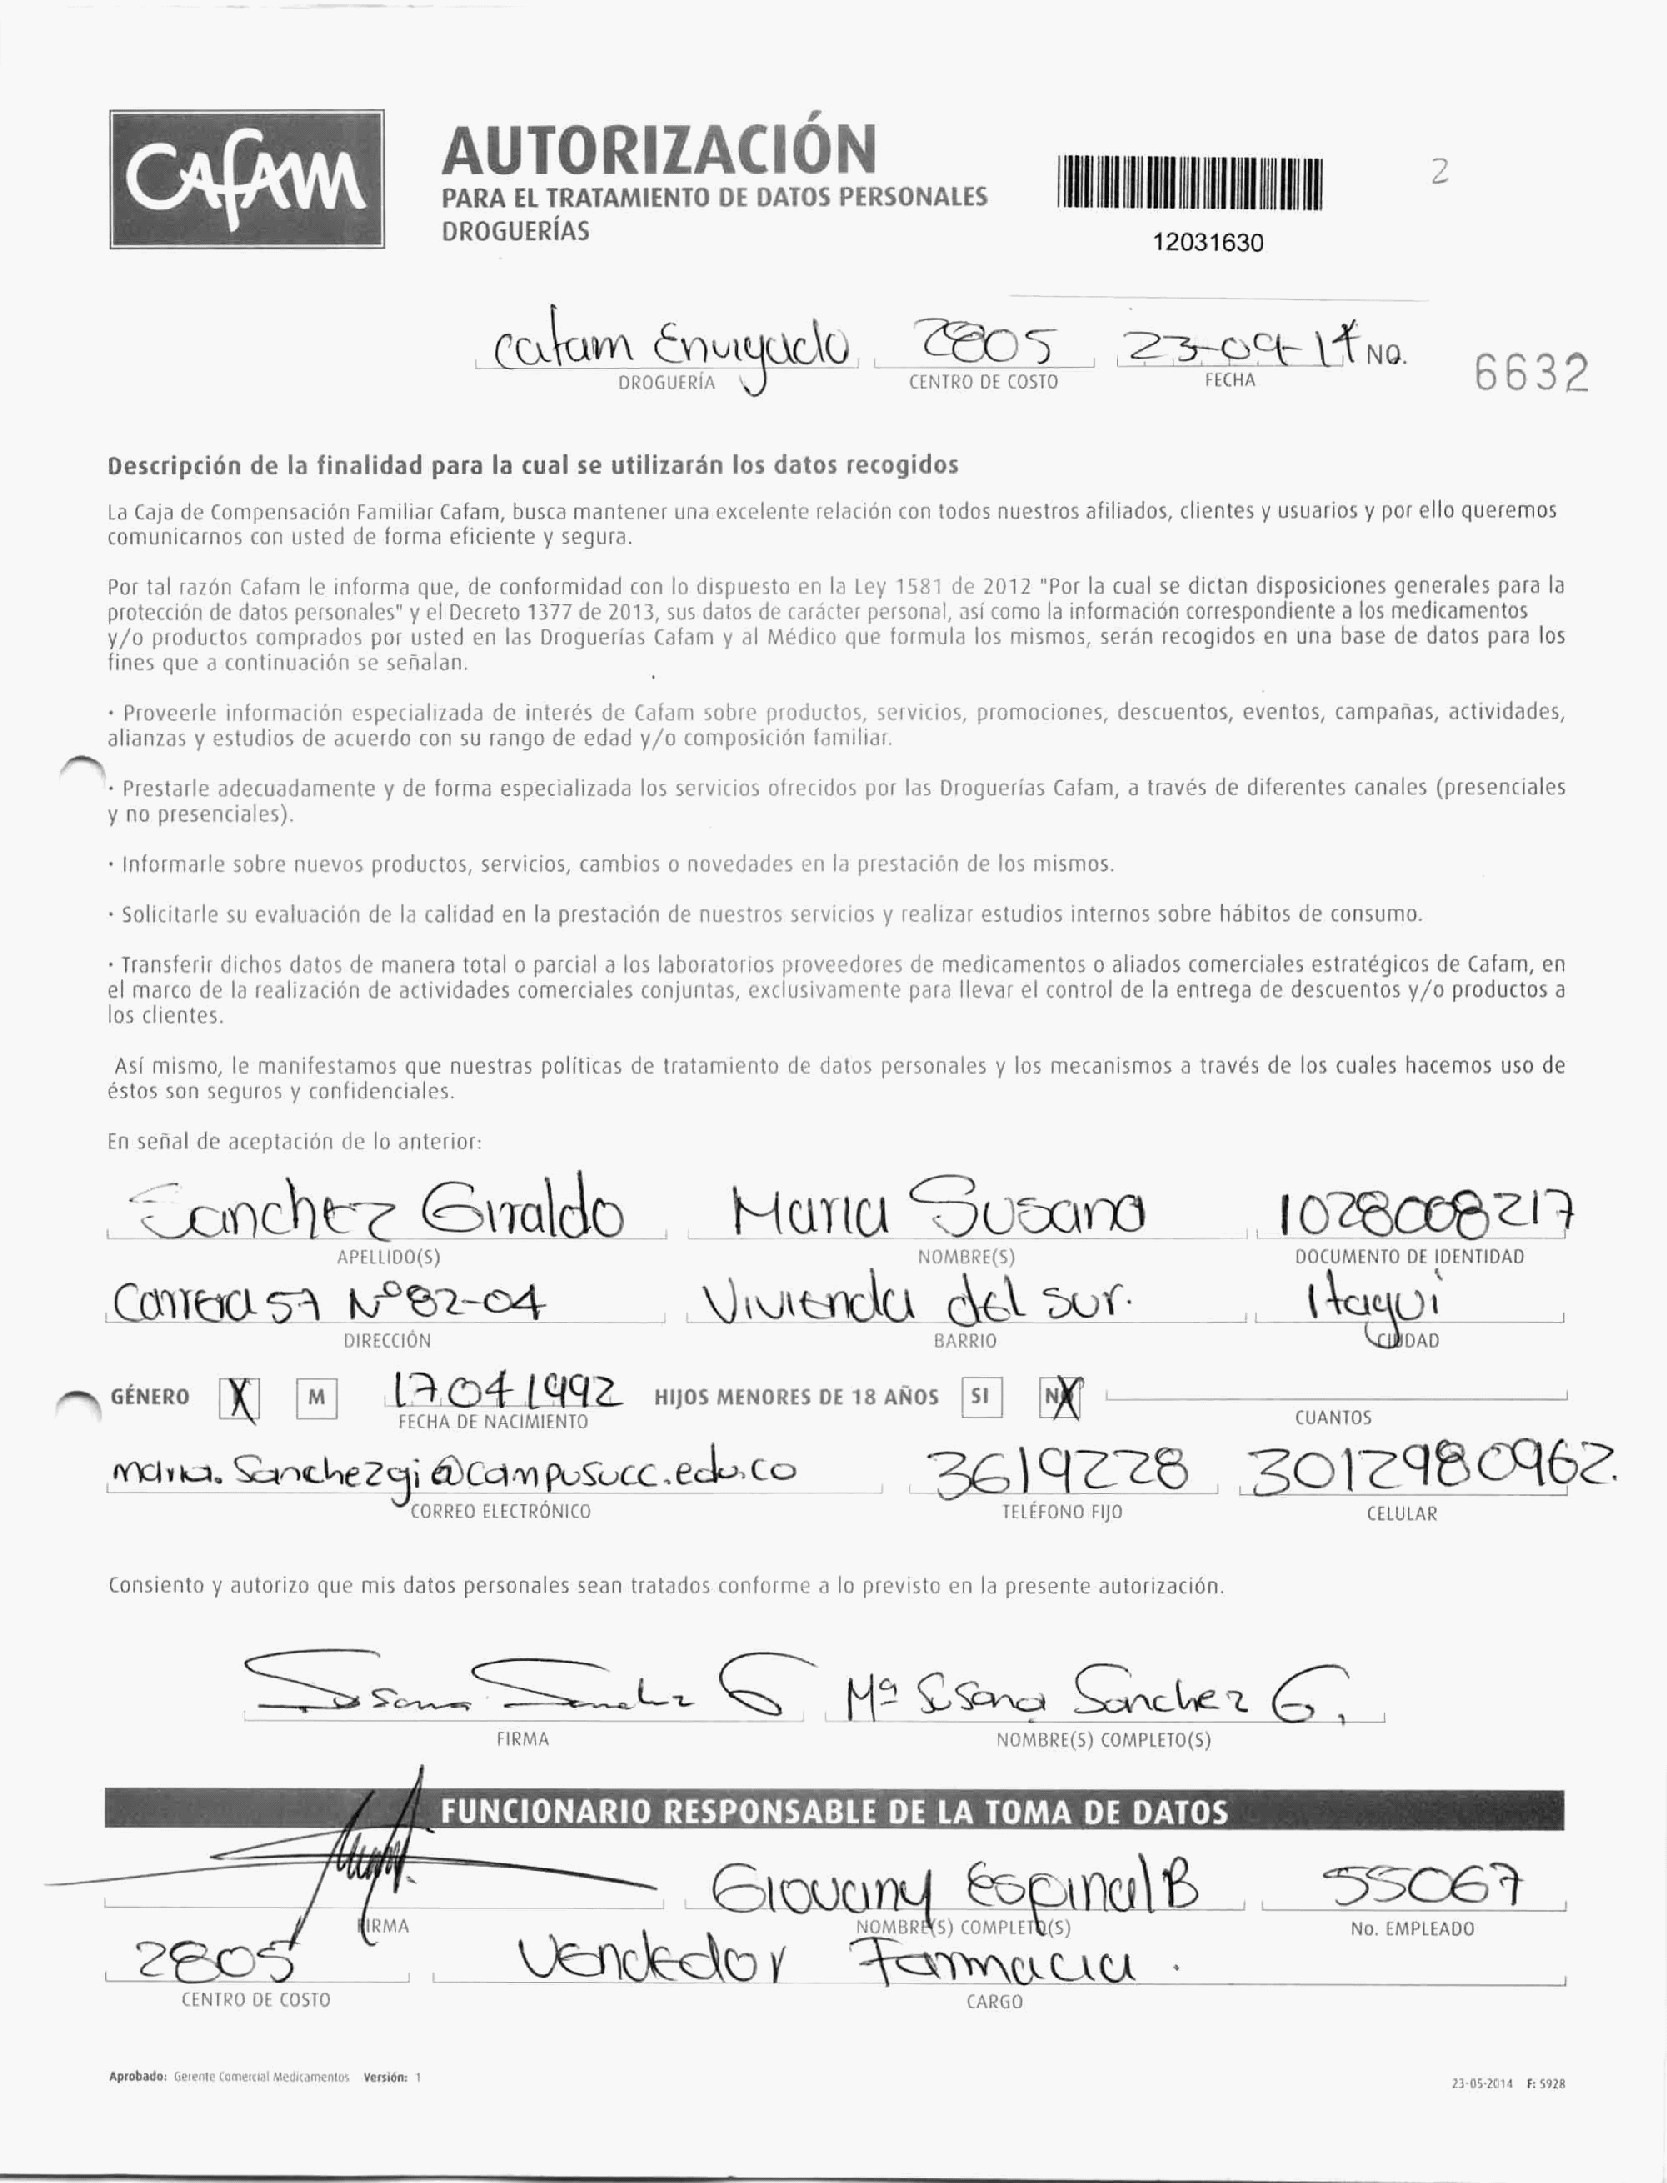 CAFAM
AUTORIZACIÓN
PARA EL TRATAMIENTO DE DATOS PERSONALES
DROGUERÍAS
12031630
2
Cafam Envigado 2805 23-09-14 NO. 6632
DROGUERÍA CENTRO DE COSTO FECHA
Descripción de la finalidad para la cual se utilizarán los datos recogidos
La Caja de Compensación Familiar Cafam, busca mantener una excelente relación con todos nuestros afiliados, clientes y usuarios y por ello queremos
comunicarnos con usted de forma eficiente y segura.
Por tal razón Cafam le informa que, de conformidad con lo dispuesto en la Ley 1581 de 2012 "Por la cual se dictan disposiciones generales para la
protección de datos personales" y el Decreto 1377 de 2013, sus datos de carácter personal, así como la información correspondiente a los medicamentos
y/o productos comprados por usted en las Droguerías Cafam y al Médico que formula los mismos, serán recogidos en una base de datos para los
fines que a continuación se señalan.
· Proveerle información especializada de interés de Cafam sobre productos, servicios, promociones, descuentos, eventos, campañas, actividades,
alianzas y estudios de acuerdo con su rango de edad y/o composición familiar.
· Prestarle adecuadamente y de forma especializada los servicios ofrecidos por las Droguerías Cafam, a través de diferentes canales (presenciales
y no presenciales).
· Informarle sobre nuevos productos, servicios, cambios o novedades en la prestación de los mismos.
· Solicitarle su evaluación de la calidad en la prestación de nuestros servicios y realizar estudios internos sobre hábitos de consumo.
· Transferir dichos datos de manera total o parcial a los laboratorios proveedores de medicamentos o aliados comerciales estratégicos de Cafam, en
el marco de la realización de actividades comerciales conjuntas, exclusivamente para llevar el control de la entrega de descuentos y/o productos a
los clientes.
Así mismo, le manifestamos que nuestras políticas de tratamiento de datos personales y los mecanismos a través de los cuales hacemos uso de
éstos son seguros y confidenciales.
En señal de aceptación de lo anterior:
Sanchez Giraldo Maria Susana 1028008217
APELLIDO(S) NOMBRE(S) DOCUMENTO DE IDENTIDAD
Carrera 57 Nº 82-04 Vivienda del sur. Itagui
DIRECCIÓN BARRIO CIUDAD
GÉNERO X M 17041992 HIJOS MENORES DE 18 AÑOS SI NO X
FECHA DE NACIMIENTO CUANTOS
maria.Sanchezgi@campusucc.edu.co 3619228 3012980962.
CORREO ELECTRÓNICO TELÉFONO FIJO CELULAR
Consiento y autorizo que mis datos personales sean tratados conforme a lo previsto en la presente autorización.
Susana Sanchez G Mª Susana Sanchez G.
FIRMA NOMBRE(S) COMPLETO(S)
FUNCIONARIO RESPONSABLE DE LA TOMA DE DATOS
Giovany Espinal B 55067
FIRMA NOMBRE(S) COMPLETO(S) No. EMPLEADO
2805 Vendedor Farmacia.
CENTRO DE COSTO CARGO
Aprobado: Gerente Comercial Medicamentos Versión: 1
23-05-2014 F: 5928